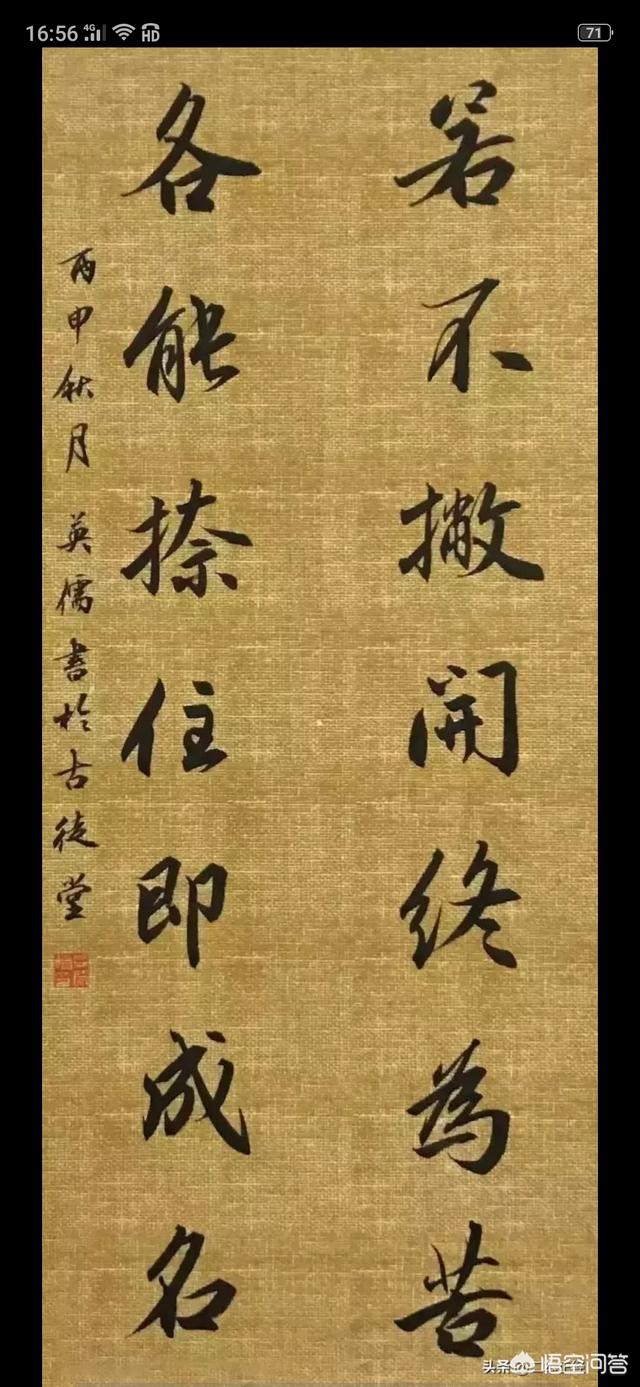 16:56 4G HD 71
若不撇開終為苦
各能捺住即成名
丙申秋月 英儒書於古徒堂
头条
悟空问答